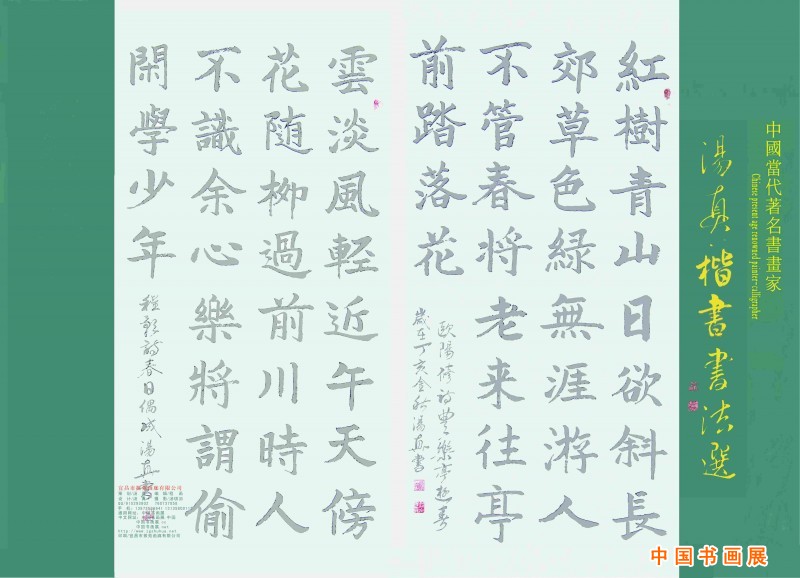 中國當代著名書畫家
Chinese present age renowned painter-calligrapher
湯真楷書書法選
紅樹青山日欲斜長
郊草色綠無涯游人
不管春將老来往亭
前踏落花
歐陽修詩豐樂亭遊春
歲在丁亥金秋湯真書
雲淡風輕近午天傍
花随柳過前川時人
不識余心樂將謂偷
閑學少年
程顥詩春日偶成湯真書
中国书画展